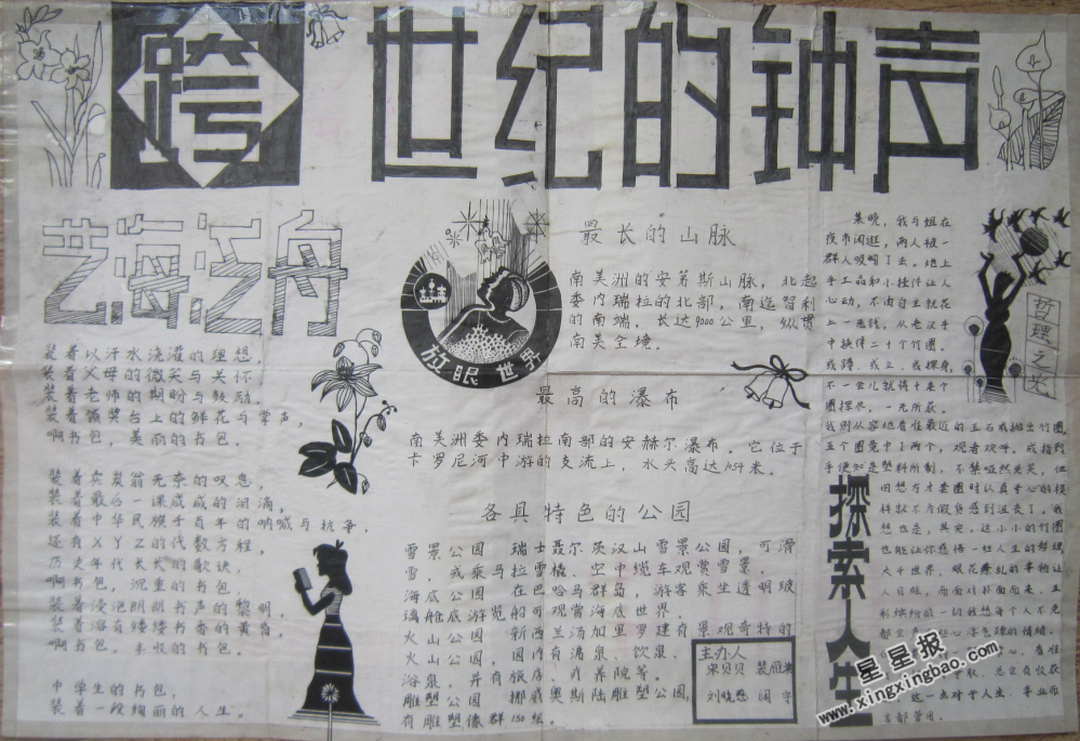 跨世纪的钟声
艺海泛舟
装着以汗水浇灌的理想,
装着父母的微笑与关怀
装着老师的期盼与鼓励.
装着领奖台上的鲜花与掌声,
啊书包,美丽的书包.
装着卖炭翁无奈的叹息,
装着最后一课咸咸的泪滴,
装着中华民族千百年的呐喊与抗争.
还有XYZ的代数方程,
历史年代长长的歌诀,
啊书包,沉重的书包,
装着浸泡朗朗书声的黎明,
装着溶有缕缕书香的黄昏.
啊书包,丰收的书包.
中学生的书包,
装着一段绚丽的人生.
放眼世界
最长的山脉
南美洲的安第斯山脉,北起
委内瑞拉的北部,南迄智利
的南端,长达9000公里,纵贯
南美全境.
最高的瀑布
南美洲委内瑞拉南部的安赫尔瀑布.它位于
卡罗尼河中游的支流上,水头高达1054米.
各具特色的公园
雪景公园 瑞士聂尔茨汉山雪景公园,可滑
雪,或乘马拉雪橇,空中缆车观赏雪景.
海底公园 在巴哈马群岛,游客乘坐透明玻
璃舱底游览船可观赏海底世界,
火山公园 新西兰汤加里罗建有景观奇特的
火山公园,园内有沸泉、饮泉、
浴泉,并有旅店、疗养院等.
雕塑公园 挪威奥斯陆雕塑公园,
有雕塑像群150组.
主办人
宋贝贝 裴雁
刘晓慧 阔宇
哲理之光
某晚,我与姐在
夜市闲逛,两人被一
群人吸引了去.地上
手工品和小挂件让人
心动,不由自主就花
上一元钱,从老汉手
中换得二十个竹圈.
或蹲、或立、或探身,
不一会儿就将十来个
圈掷尽,一无所获.
我则从容地看住最近的玉石戒抛出竹圈
五个圈竟中了两个,观者欢呼.戒指到
手便知是塑料所制,不禁哑然失笑,但
回想方才套圈时认真专心的模
样就不为假货感到沮丧了.我
想也是,其实,这小小的竹圈
也能让你感悟一些人生的哲理
大千世界,眼花缭乱的事物让
人目眩,而面对扑面而来、五
彩缤纷的一切我想每个人不免
探索人生
星星报
www.xingxingbao.com